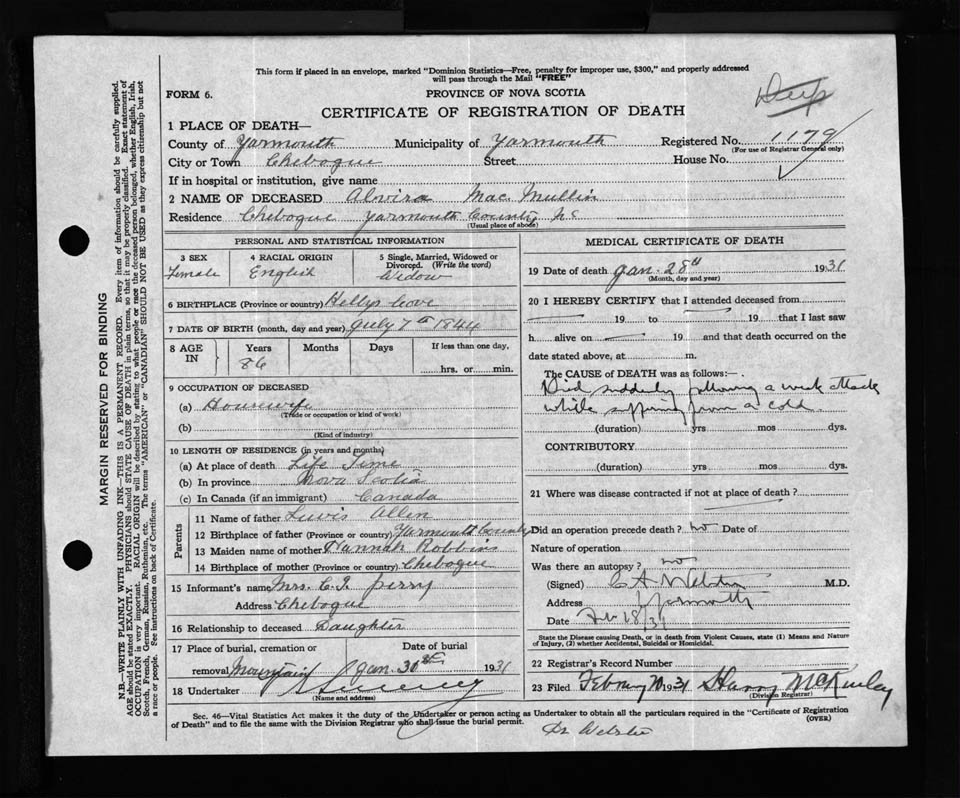 This form if placed in an envelope, marked "Dominion Statistics—Free, penalty for improper use, $300," and properly addressed
will pass through the Mail "FREE"
FORM 6.
PROVINCE OF NOVA SCOTIA
CERTIFICATE OF REGISTRATION OF DEATH
1 PLACE OF DEATH—
County of Yarmouth Municipality of Yarmouth Registered No. 1179
(For use of Registrar General only)
City or Town Chebogue Street House No.
If in hospital or institution, give name
2 NAME OF DECEASED Alvira Mac Mullin
Residence Chebogue Yarmouth County N S
(Usual place of abode)
PERSONAL AND STATISTICAL INFORMATION
3 SEX 4 RACIAL ORIGIN 5 Single, Married, Widowed or
Divorced. (Write the word)
Female English Widow
6 BIRTHPLACE (Province or country) Kellys Cove
7 DATE OF BIRTH (month, day and year) July 7th 1844
8 AGE IN Years Months Days If less than one day,
86 hrs. or min.
9 OCCUPATION OF DECEASED
(a) Housewife
(Trade or occupation or kind of work)
(b)
(Kind of industry)
10 LENGTH OF RESIDENCE (in years and months)
(a) At place of death Life Time
(b) In province Nova Scotia
(c) In Canada (if an immigrant) Canada
Parents
11 Name of father Lewis Allen
12 Birthplace of father (Province or country) Yarmouth County
13 Maiden name of mother Hannah Robbins
14 Birthplace of mother (Province or country) Chebogue
15 Informant's name Mrs. C. I. Perry
Address Chebogue
16 Relationship to deceased Daughter
17 Place of burial, cremation or Date of burial
removal Mountain Jan 30th 1931
18 Undertaker
(Name and address)
MEDICAL CERTIFICATE OF DEATH
19 Date of death Jan. 28th 1931
(Month, day and year)
20 I HEREBY CERTIFY that I attended deceased from
19 to 19 that I last saw
h alive on 19 and that death occurred on the
date stated above, at m.
The CAUSE of DEATH was as follows:—
Died suddenly following a weak attack
while suffering from a cold
(duration) yrs mos dys.
CONTRIBUTORY
(duration) yrs mos dys.
21 Where was disease contracted if not at place of death?
Did an operation precede death? no Date of
Nature of operation
Was there an autopsy? no
(Signed) C A Webster M.D.
Address Yarmouth
Date
State the Disease causing Death, or in death from Violent Causes, state (1) Means and Nature
of Injury, (2) whether Accidental, Suicidal or Homicidal.
22 Registrar's Record Number
23 Filed 1931 Harry McKinley
(Division Registrar)
Sec. 46—Vital Statistics Act makes it the duty of the Undertaker or person acting as Undertaker to obtain all the particulars required in the "Certificate of Registration
of Death" and to file the same with the Division Registrar who shall issue the burial permit.
(OVER)
Dr Webster
MARGIN RESERVED FOR BINDING
N.B.—WRITE PLAINLY WITH UNFADING INK—THIS IS A PERMANENT RECORD. Every item of information should be carefully supplied.
AGE should be stated EXACTLY. PHYSICIANS should STATE CAUSE OF DEATH in plain terms, so that it may be properly classified. Exact statement of
OCCUPATION is very important. RACIAL ORIGIN will be described by stating to what people or race the deceased person belonged, whether English, Irish,
Scotch, French, German, Russian, Ruthenian, etc. The terms "AMERICAN" or "CANADIAN" SHOULD NOT BE USED as they express citizenship but not
a race or people. See instructions on back of Certificate.